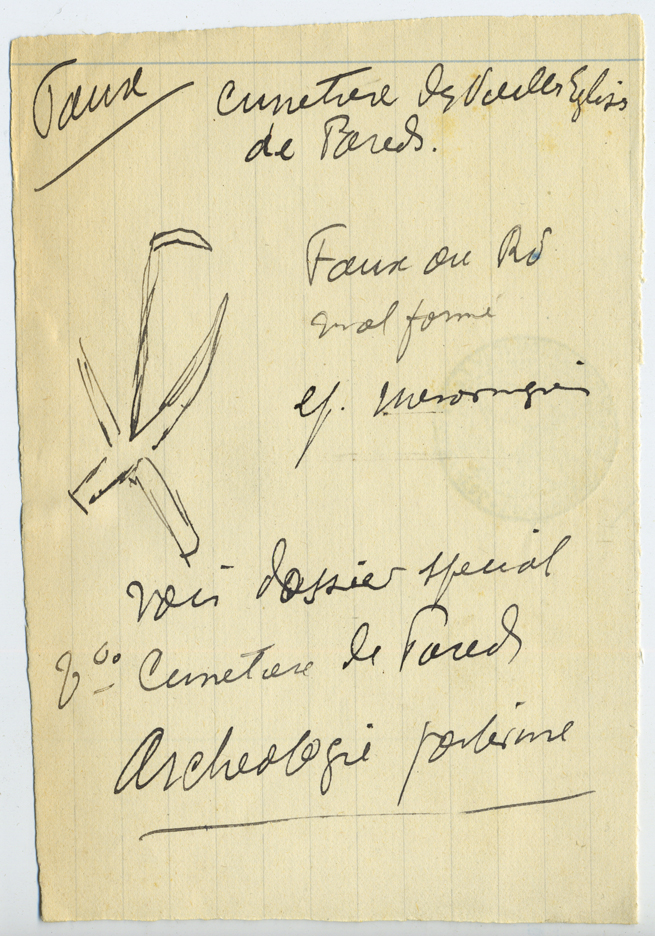 Faux
Cimetiere de Vieilles Eglises
de Pareds.
Faux ou Rō
mal formé
cf. Merovingien
voir dossier special
Cimetiere de Pareds
Archeologie